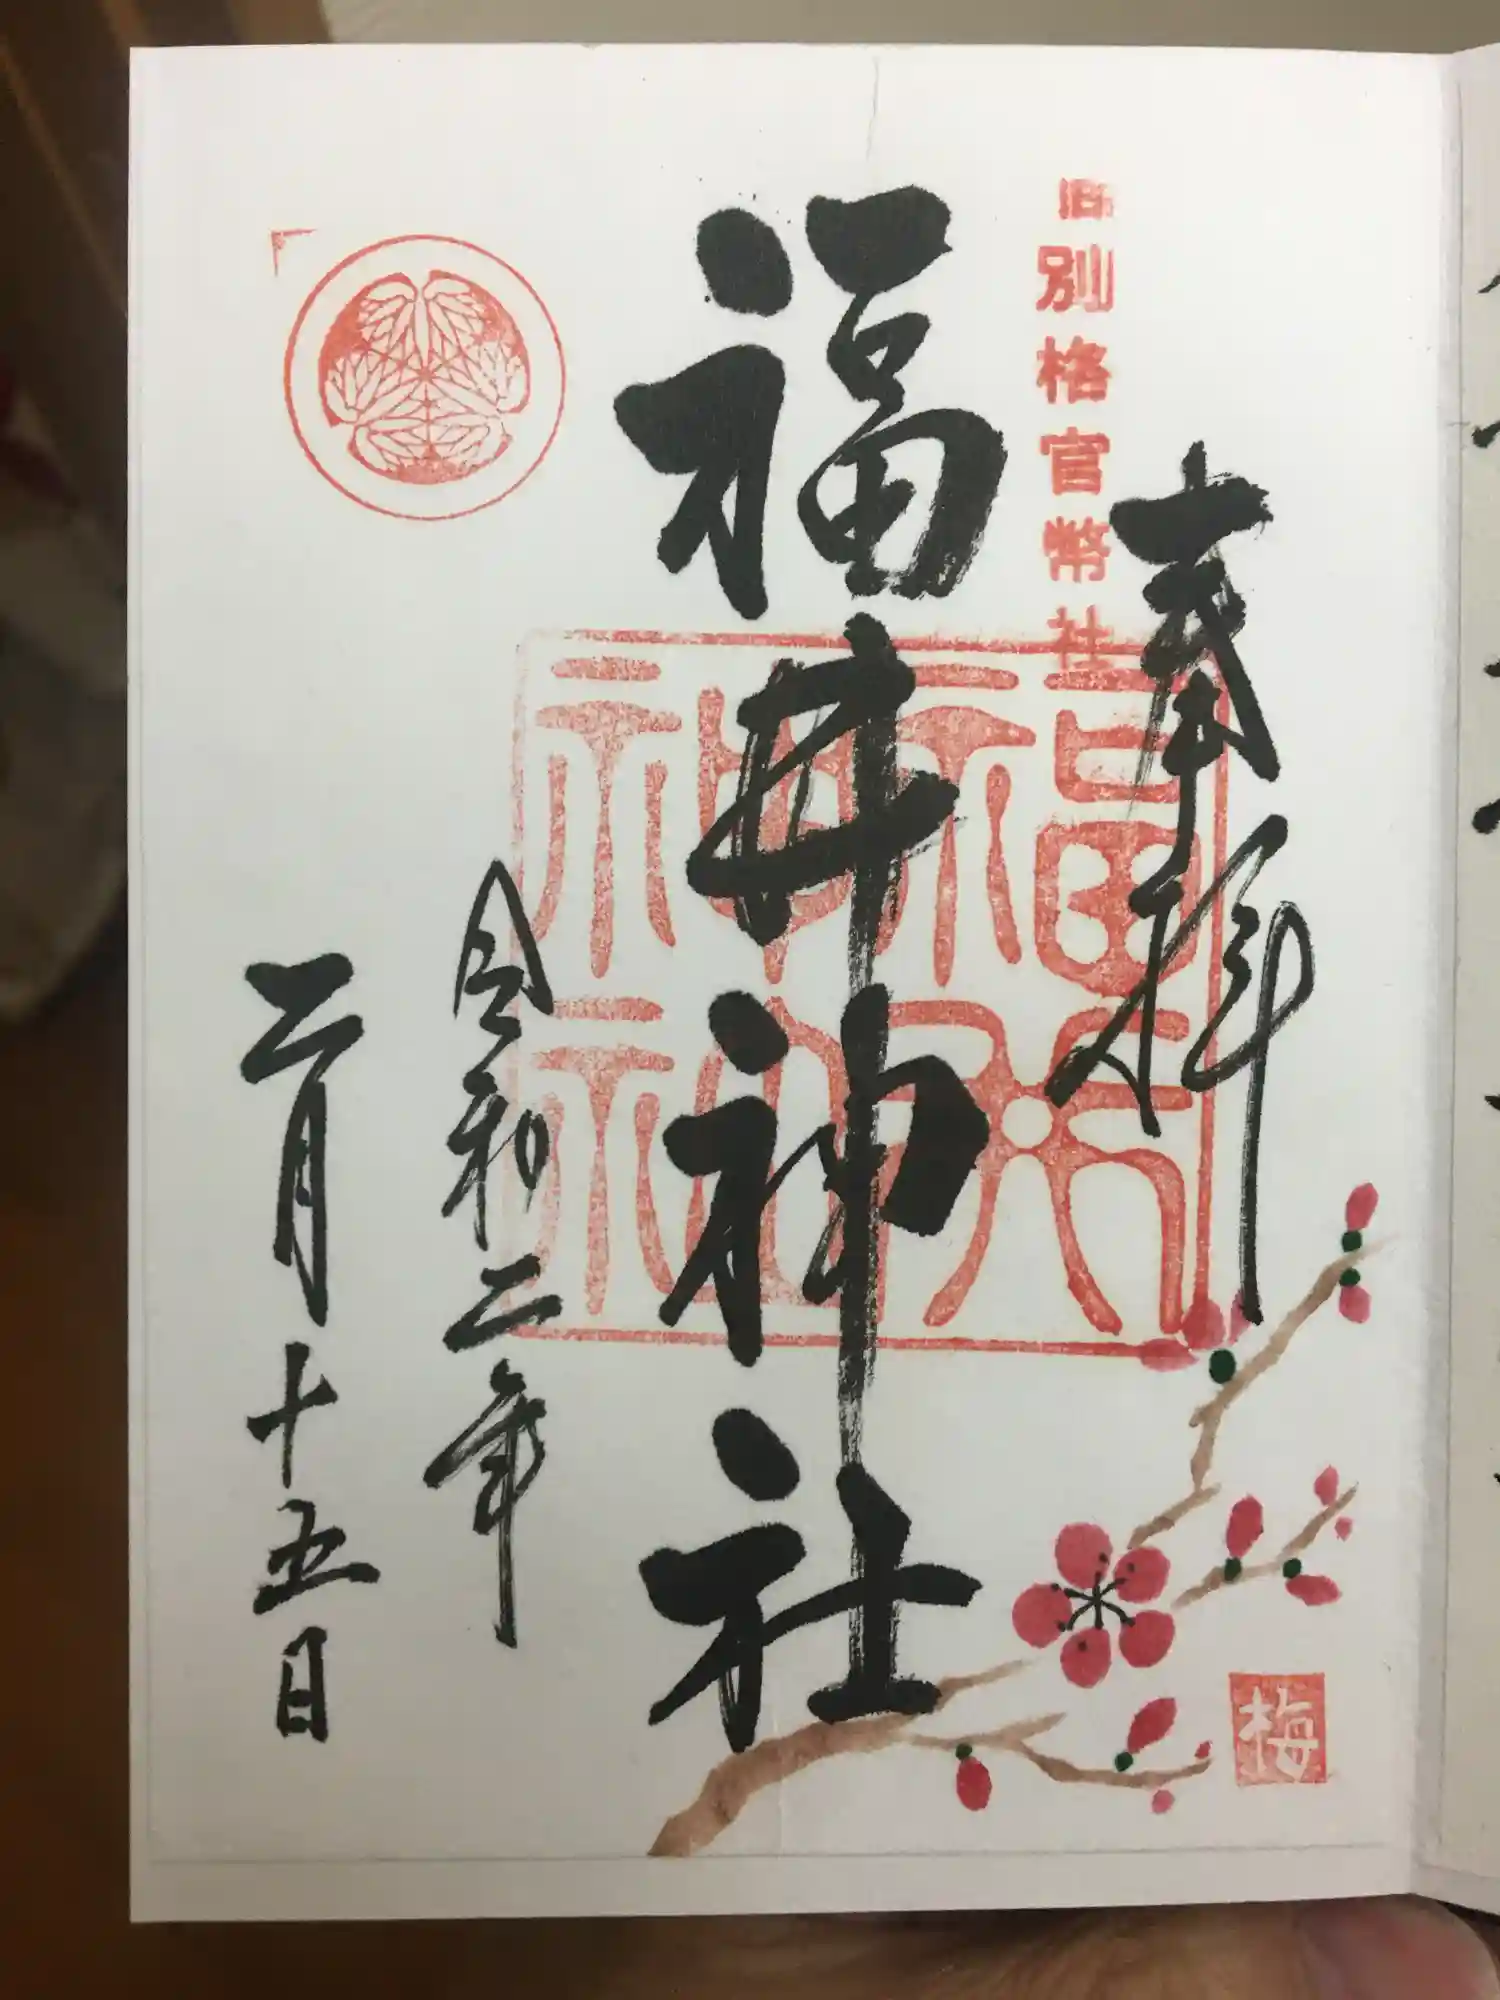 旧別格官幣社
奉拝
福井神社
福井
神社
令和二年
二月十五日
梅